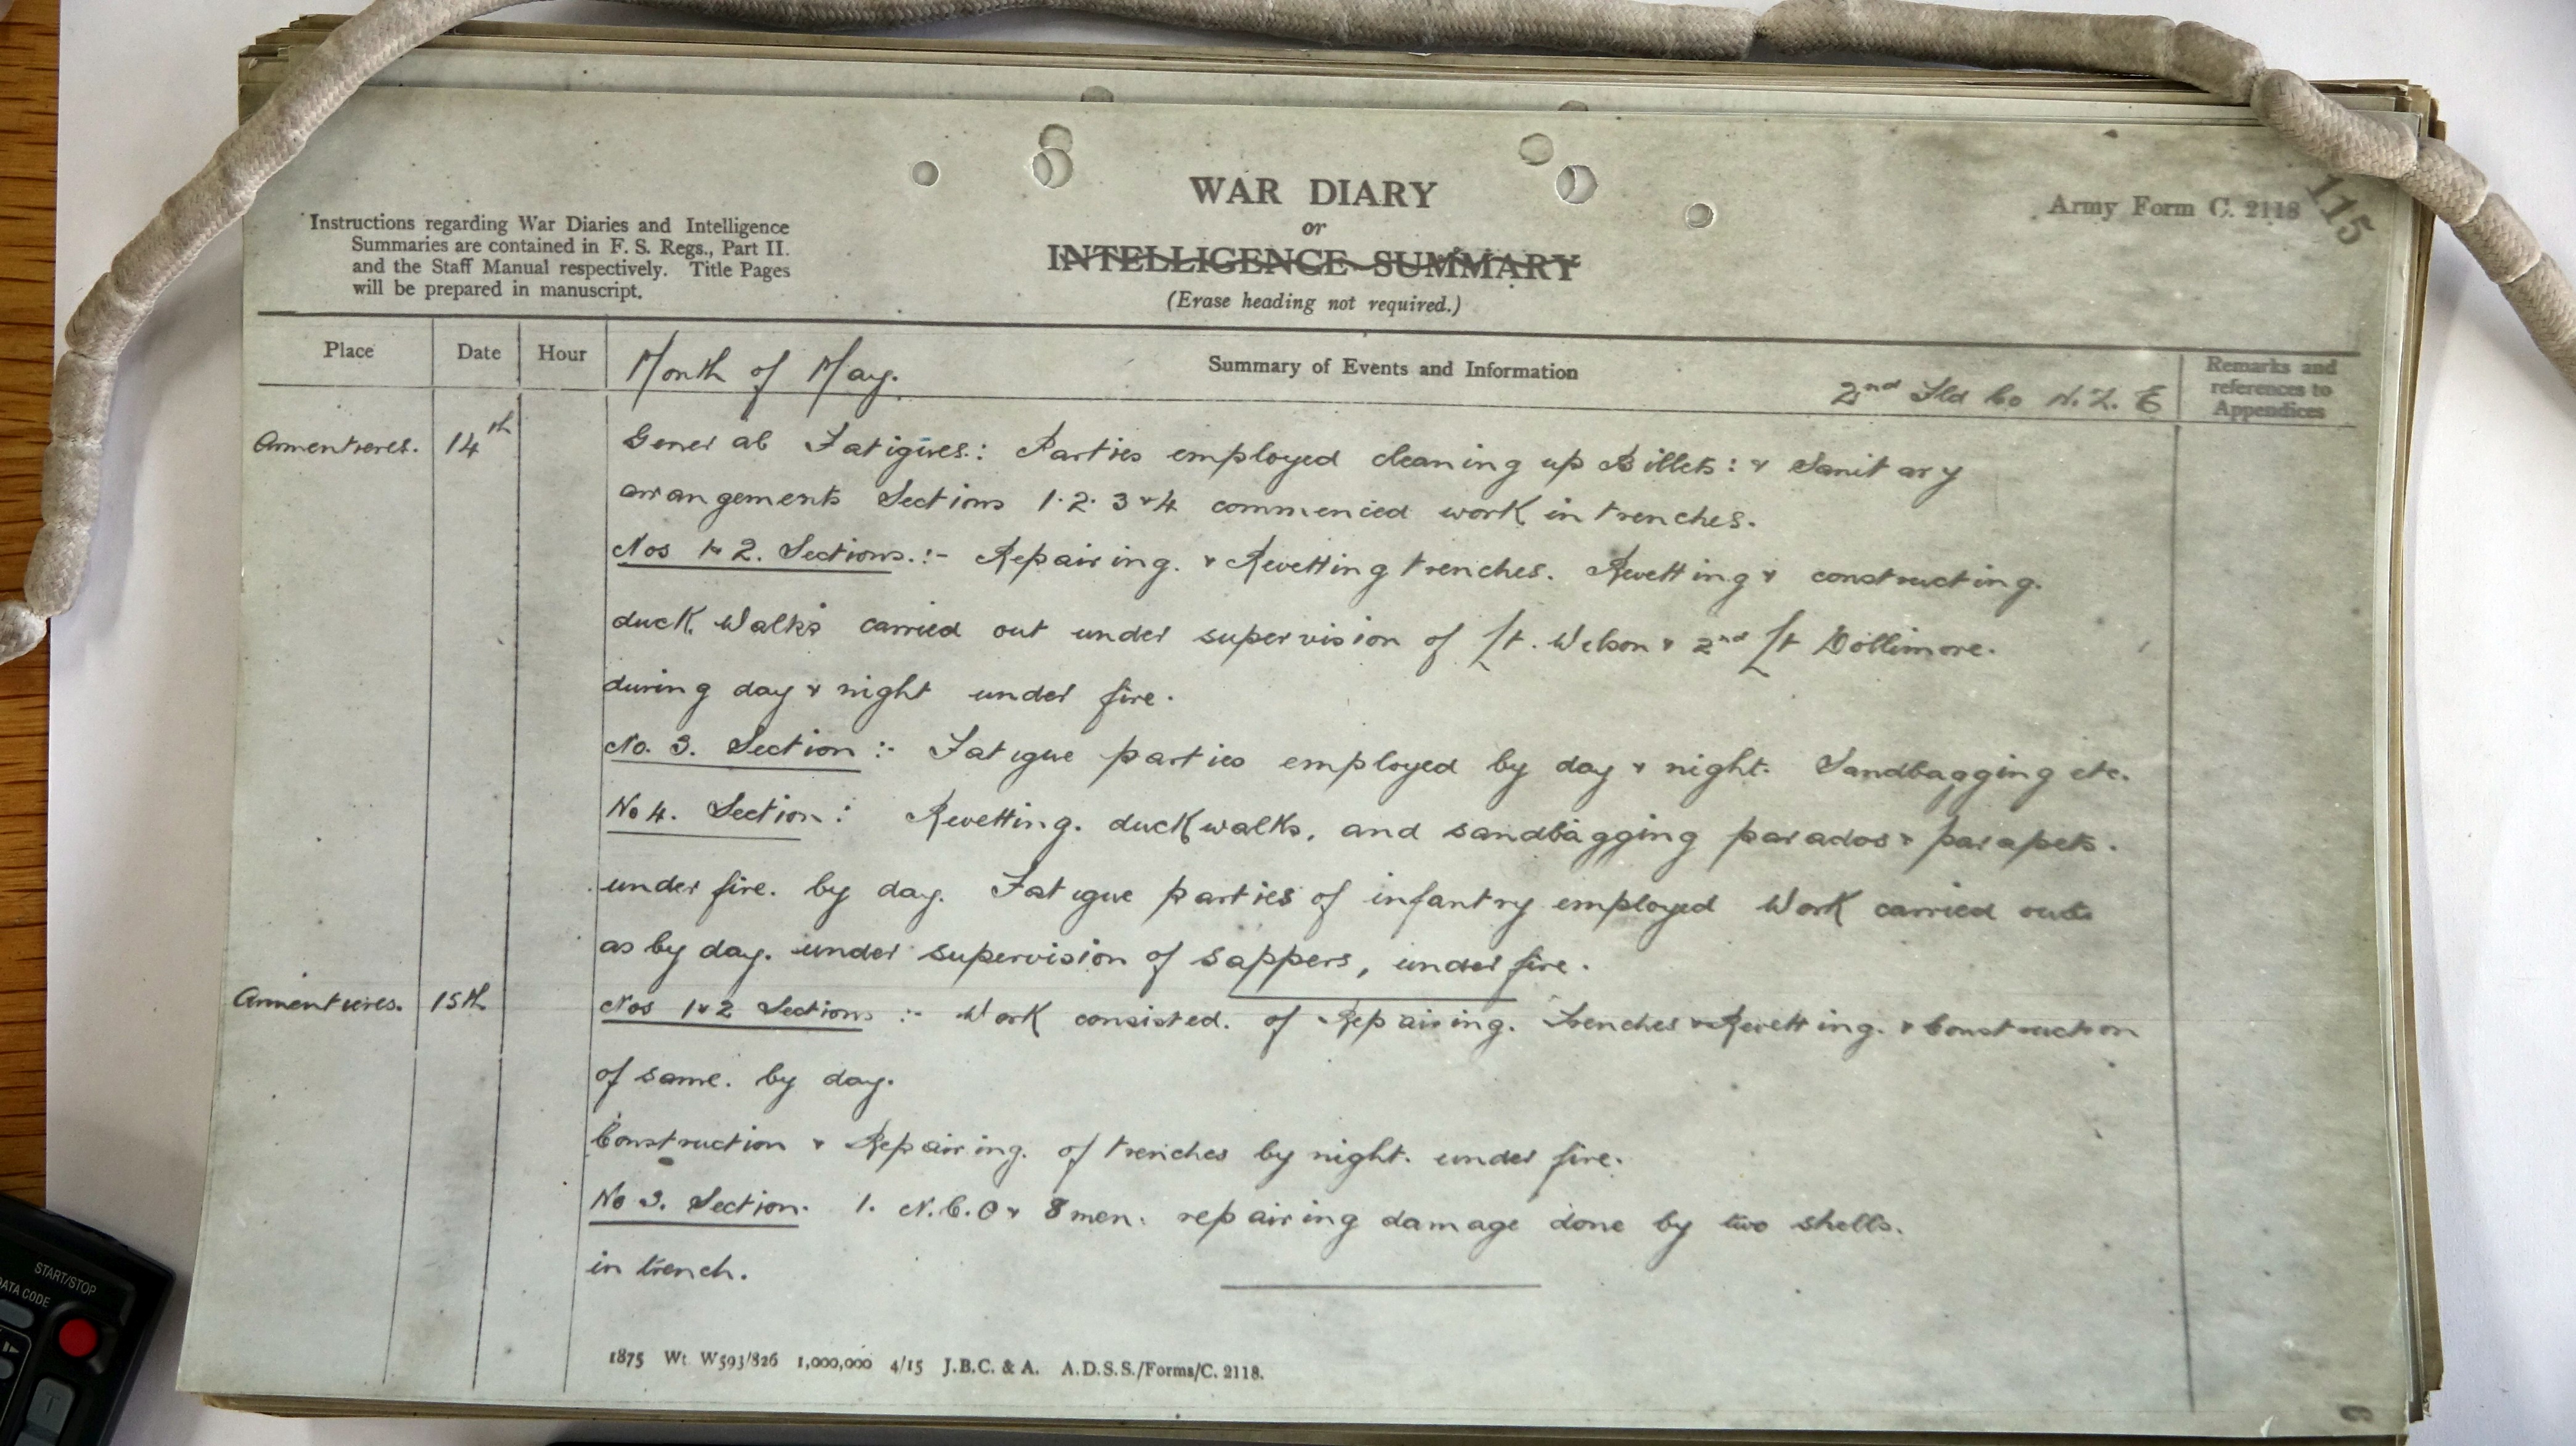 Instructions regarding War Diaries and Intelligence
Summaries are contained in F. S. Regs., Part II.
and the Staff Manual respectively. Title Pages
will be prepared in manuscript.
WAR DIARY
or
INTELLIGENCE SUMMARY
(Erase heading not required.)
Army Form C. 2118
115
Place
Date
Hour
Month of May.
Summary of Events and Information
2nd Fld Co N.Z.E
Remarks and
references to
Appendices
Armentieres. 14th General Fatigues: Parties employed cleaning up Billets: & Sanitary
arrangements Sections 1.2.3 & 4 commenced work in trenches.
Nos 1 & 2. Sections.:- Repairing. & Revetting trenches. Revetting & constructing.
duck Walks carried out under supervision of Lt. & 2nd Lt Dollimore.
during day & night under fire.
No. 3. Section:- Fatigue parties employed by day & night. Sandbagging etc.
No 4. Section: Revetting. duckwalks, and sandbagging parados & parapets.
under fire. by day. Fatigue parties of infantry employed Work carried out
as by day. under supervision of sappers, under fire.
Armentieres. 15th Nos 1 & 2 Sections:- Work consisted. of Repairing. Trenches & Revetting. & Construction
of same. by day.
Construction & Repairing. of trenches by night. under fire.
No 3. Section. 1. N.C.O & 8 men. repairing damage done by two shells.
in trench.
1875 Wt. W593/826 1,000,000 4/15 J.B.C. & A. A.D.S.S./Forms/C. 2118.
START/STOP
DATA CODE